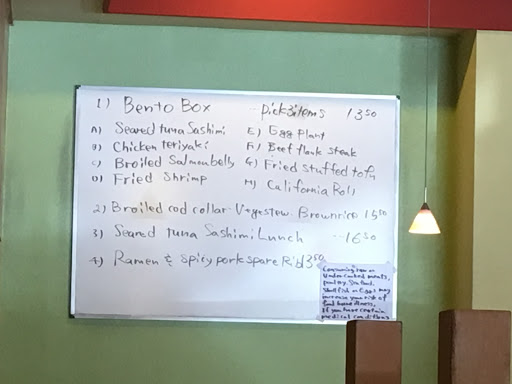 1) Bento Box pick 3 items 13 50
A) Seared tuna Sashimi E) Egg Plant
B) Chicken teriyaki F) Beef flank steak
C) Broiled Salmon belly G) Fried stuffed tofu
D) Fried Shrimp H) California Roll
2) Broiled cod collar. Vege stew. Brown rice 15 50
3) Seared tuna Sashimi Lunch --16 50
4) Ramen & Spicy pork spare Rib 13 50
Consuming raw or
undercooked meats,
poultry, Seafood,
Shellfish or Eggs may
increase your risk of
food borne illness,
If you have certain
medical conditions